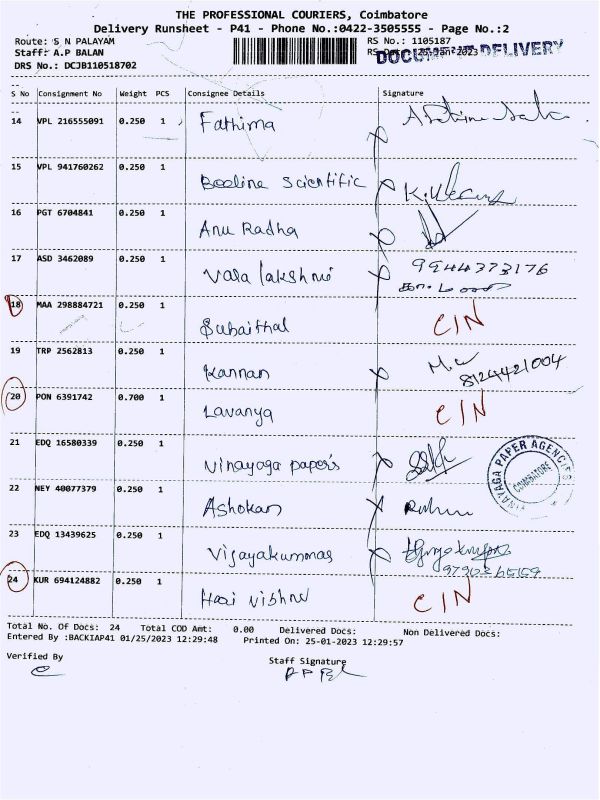 THE PROFESSIONAL COURIERS, Coimbatore
Delivery Runsheet - P41 - Phone No.:0422-3505555 - Page No.:2
Route: S N PALAYAM
RS No.: 1105187
Staff: A.P BALAN
DOCUMENT DELIVERY
DRS No.: DCJB110518702
S No Consignment No Weight PCS Consignee Details Signature
14 VPL 216555091 0.250 1 Fathima
15 VPL 941760262 0.250 1 Beeline Scientific
16 PGT 6704841 0.250 1 Anu Radha
17 ASD 3462089 0.250 1 Vala lakshmi 9944373176
18 MAA 298884721 0.250 1 Subaithal CIN
19 TRP 2562813 0.250 1 Kannan 8124421004
20 PON 6391742 0.700 1 Lavanya CIN
21 EDQ 16580339 0.250 1 Vinayaga paper's
VINAYAGA PAPER AGENCIES
COIMBATORE
22 NEY 40077379 0.250 1 Ashokan
23 EDQ 13439625 0.250 1 Vijayakummas
24 KUR 694124882 0.250 1 Hari Vishnu CIN
Total No. Of Docs: 24 Total COD Amt: 0.00 Delivered Docs: Non Delivered Docs:
Entered By :BACKIAP41 01/25/2023 12:29:48 Printed On: 25-01-2023 12:29:57
Verified By
Staff Signature